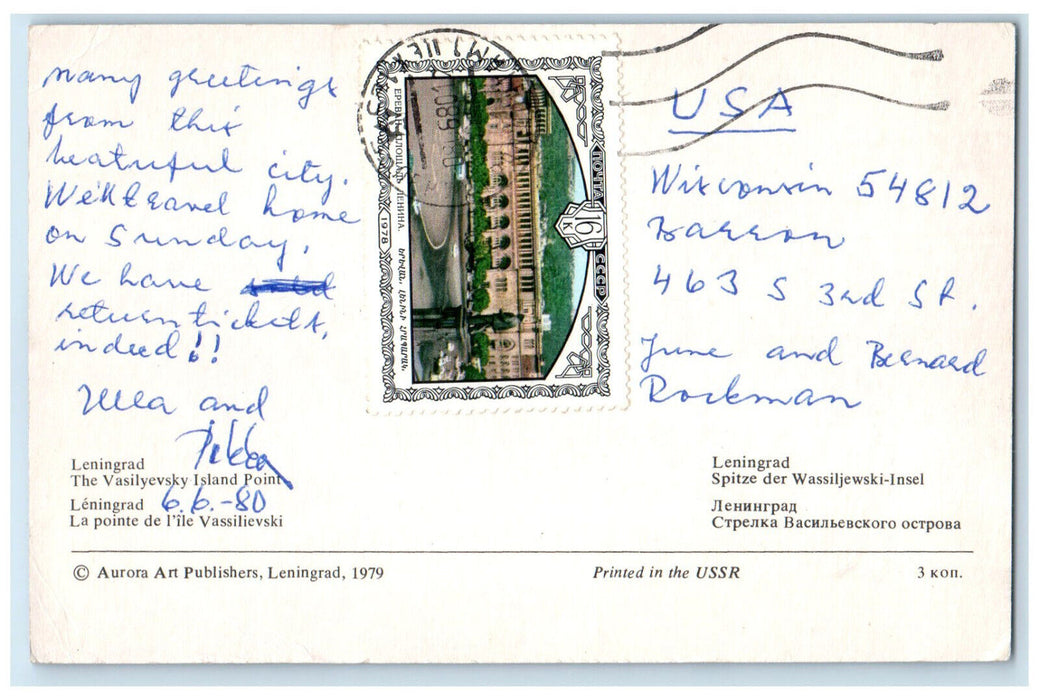 many greetings
from this
beatuful city.
We'll travel home
on Sunday,
We have
return tickets,
indeed!!
Ulla and
Pekka
6.6.-80
Leningrad
The Vasilyevsky Island Point
Léningrad
La pointe de l'île Vassilievski
© Aurora Art Publishers, Leningrad, 1979
ЕРЕВАН. ПЛОЩАДЬ ЛЕНИНА.
ԵՐԵՎԱՆ. ԼԵՆԻՆԻ ՀՐԱՊԱՐԱԿ.
1978
ПОЧТА
16
К
СССР
USA
Wisconsin 54812
Barron
463 S 3rd St.
June and Bernard
Rockman
Leningrad
Spitze der Wassiljewski-Insel
Ленинград
Стрелка Васильевского острова
Printed in the USSR
3 коп.